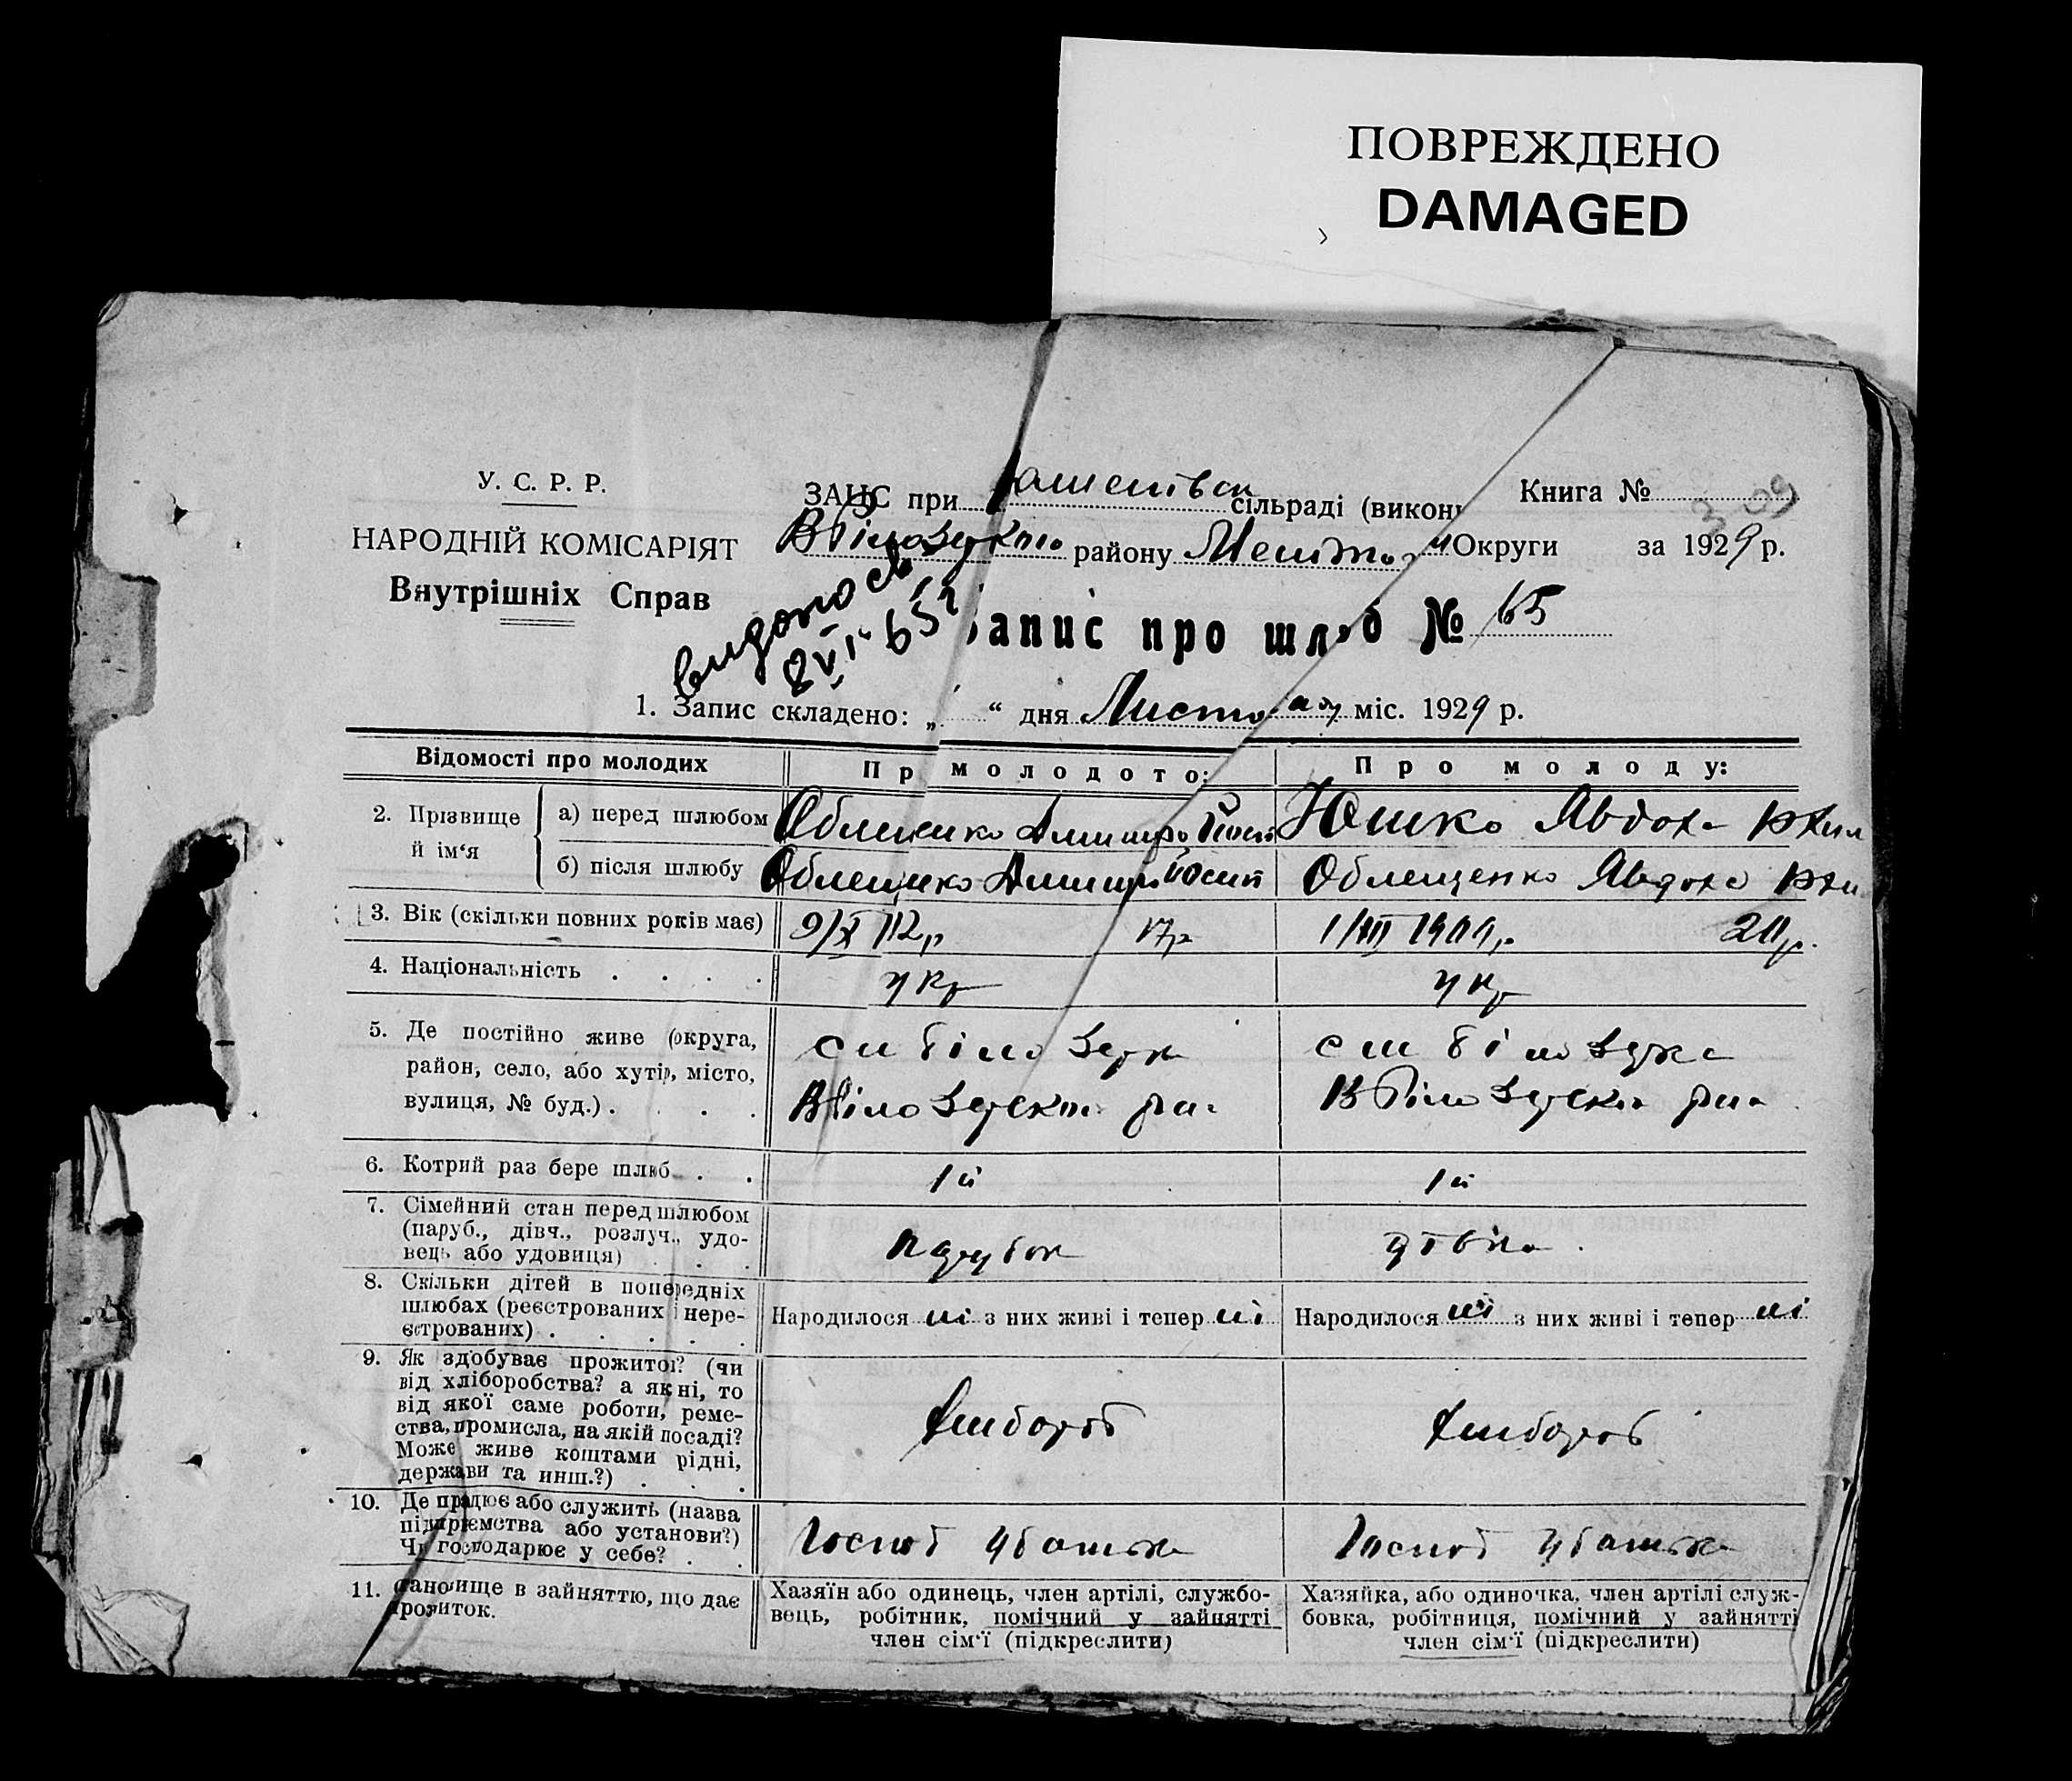 ПОВРЕЖДЕНО
DAMAGED
У. С. Р. Р.
НАРОДНІЙ КОМІСАРІЯТ
Внутрішніх Справ
ЗАЦС при сільраді (викон
Книга № 309
району Округи за 1929 р.
Запис про шлюб № 65
1. Запис складено: „ “ дня Листопада міс. 1929 р.
Відомості про молодих
Про молодого:
Про молоду:
2. Прізвище й ім‘я
а) перед шлюбом
Юшко Явдоха
б) після шлюбу
Облещенко Явдоха
3. Вік (скільки повних років має)
9/X 112р 17р
1/III 1909р. 20р.
4. Національність . . . .
укр
укр
5. Де постійно живе (округа, район, село, або хутір, місто, вулиця, № буд.) . . . .
6. Котрий раз бере шлюб . .
1й
1й
7. Сімейний стан перед шлюбом (паруб., дівч., розлуч., удовець або удовиця) . . .
парубок
дівка
8. Скільки дітей в попередніх шлюбах (реєстрованих і нереєстрованих) . . . . .
Народилося ні з них живі і тепер ні
Народилося ні з них живі і тепер ні
9. Як здобуває прожиток? (чи від хліборобства? а як ні, то від якої саме роботи, реме-
ства, промисла, на якій посаді? Може живе коштами рідні, держави та инш.?) . . .
хлібороб
хлібороб
10. Де працює або служить (назва підприємства або установи?) Чи господарює у себе? . .
Господ у батька
Господ у батька
11. Становище в зайняттю, що дає прожиток.
Хазяїн або одинець, член артілі, службо-
вець, робітник, помічний у зайнятті
член сім‘ї (підкреслити)
Хазяйка, або одиночка, член артілі служ-
бовка, робітниця, помічний у зайнятті
член сім‘ї (підкреслити)